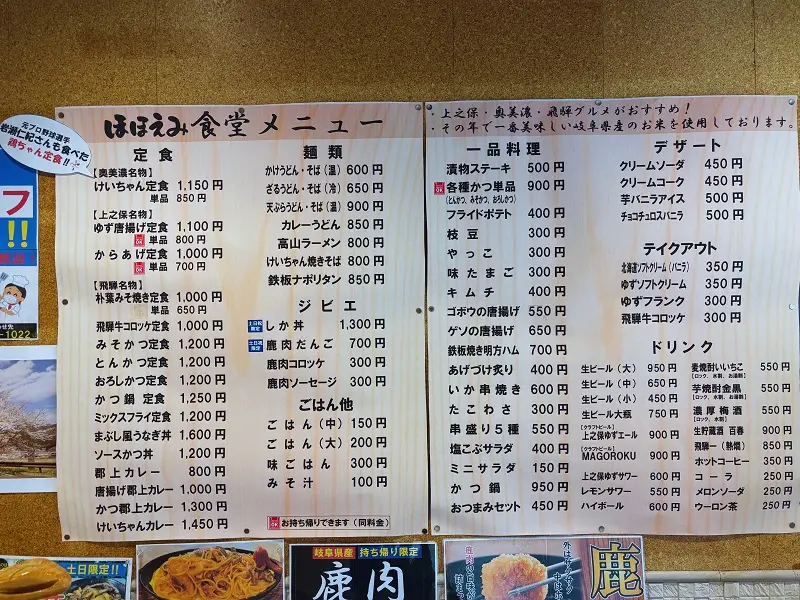 ほほえみ食堂メニュー
元プロ野球選手
岩瀬仁紀さんも食べた
鶏ちゃん定食!!
定食
【奥美濃名物】
けいちゃん定食 1,150円
単品 850円
【上之保名物】
ゆず唐揚げ定食 1,100円
単品 800円
からあげ定食 1,000円
単品 700円
【飛騨名物】
朴葉みそ焼き定食 1,000円
単品 650円
飛騨牛コロッケ定食 1,000円
みそかつ定食 1,200円
とんかつ定食 1,200円
おろしかつ定食 1,200円
かつ鍋定食 1,250円
ミックスフライ定食 1,200円
まぶし風うなぎ丼 1,600円
ソースかつ丼 1,200円
郡上カレー 800円
唐揚げ郡上カレー 1,000円
かつ郡上カレー 1,300円
けいちゃんカレー 1,450円
麺類
かけうどん・そば(温) 600円
ざるうどん・そば(冷) 650円
天ぷらうどん・そば(温) 900円
カレーうどん 850円
高山ラーメン 800円
けいちゃん焼きそば 800円
鉄板ナポリタン 850円
ジビエ
土日祝限定 しか丼 1,300円
土日祝限定 鹿肉だんご 700円
鹿肉コロッケ 300円
鹿肉ソーセージ 300円
ごはん他
ごはん(中) 150円
ごはん(大) 200円
味ごはん 300円
みそ汁 100円
お持ち帰りできます(同料金)
・上之保・奥美濃・飛騨グルメがおすすめ!
・その年で一番美味しい岐阜県産のお米を使用しております。
一品料理
漬物ステーキ 500円
各種かつ単品 900円
(とんかつ、みそかつ、おろしかつ)
フライドポテト 400円
枝豆 300円
やっこ 300円
味たまご 300円
キムチ 400円
ゴボウの唐揚げ 550円
ゲソの唐揚げ 650円
鉄板焼き明方ハム 700円
あげづけ炙り 400円
いか串焼き 600円
たこわさ 300円
串盛り5種 550円
塩こぶサラダ 400円
ミニサラダ 150円
かつ鍋 950円
おつまみセット 450円
デザート
クリームソーダ 450円
クリームコーク 450円
芋バニラアイス 500円
チョコチュロスバニラ 500円
テイクアウト
北海道ソフトクリーム(バニラ) 350円
ゆずソフトクリーム 350円
ゆずフランク 300円
飛騨牛コロッケ 300円
ドリンク
生ビール(大) 950円
生ビール(中) 650円
生ビール(小) 450円
生ビール大瓶 750円
【クラフトビール】
上之保ゆずエール 900円
【クラフトビール】
MAGOROKU 900円
上之保ゆずサワー 600円
レモンサワー 550円
ハイボール 600円
麦焼酎いいちこ 550円
【ロック、水割、お湯割】
芋焼酎金黒 550円
【ロック、水割、お湯割】
濃厚梅酒 550円
【ロック、水割】
生貯蔵酒 百春 900円
飛騨一(熱燗) 850円
ホットコーヒー 350円
コーラ 250円
メロンソーダ 250円
ウーロン茶 250円
フ
!!
-1022
土日限定!!
岐阜県産 持ち帰り限定
鹿肉
外はサクサク
鹿